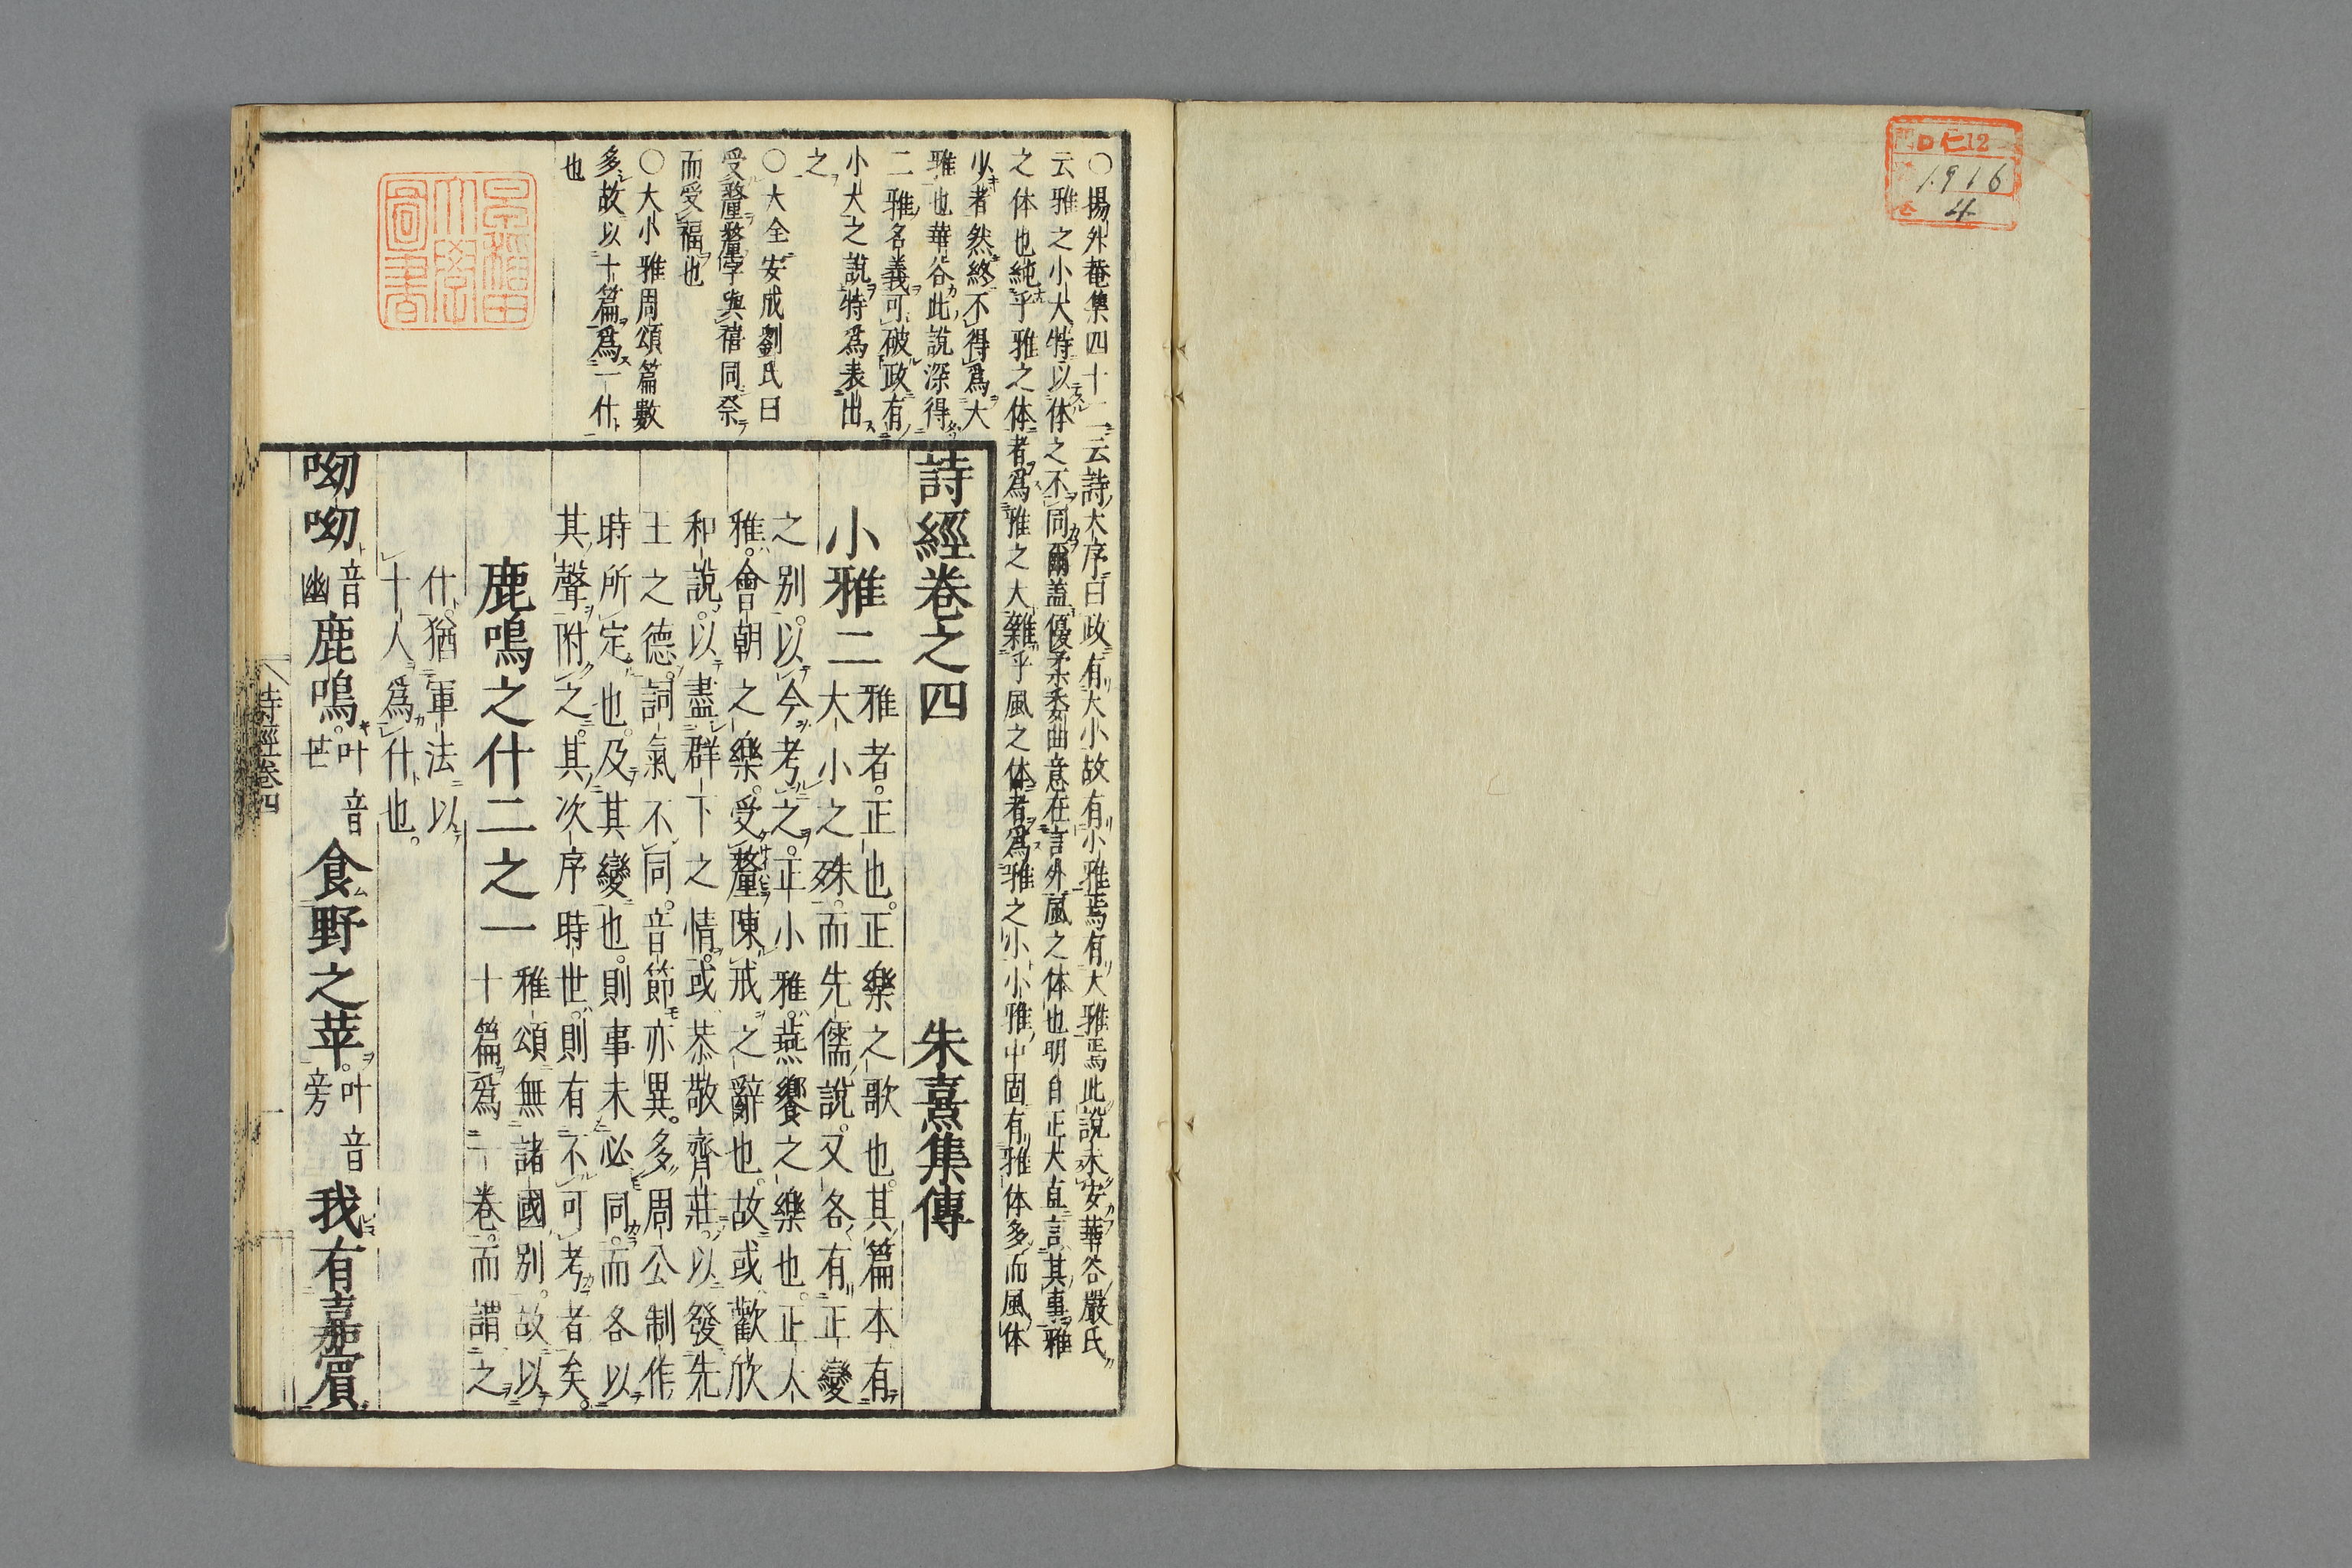 門 ロ仁12
號 1916
卷 4
○揚外菴集四十二云詩大序曰政有大小故有小雅焉有大雅焉此說未安華谷嚴氏
云雅之小大特以体之不同爾蓋優柔委曲意在言外風之体也明白正大直言其事雅
之体也純乎雅之体者為雅之大雜乎風之体者為雅之小小雅中固有雅体多而風体
少者然終不得為大
雅也華谷此說深得
二雅名義可破政有
小大之說特為表出
之
○大全安成劉氏曰
受釐釐字與禧同祭
而受福也
○大小雅周頌篇數
多故以十篇為一什
也
早稲田大學圖書
詩經卷之四 朱熹集傳
小雅二 雅者正也正樂之歌也其篇本有
大小之殊而先儒說又各有正變
之別以今考之正小雅燕饗之樂也正大
雅會朝之樂受釐陳戒之辭也故或歡欣
和說以盡群下之情或恭敬齊莊以發先
王之德詞氣不同音節亦異多周公制作
時所定也及其變也則事未必同而各以
其聲附之其次序時世則有不可考者矣
鹿鳴之什二之一 雅頌無諸國別故以
十篇為一卷而謂之
什猶軍法以
十人為什也
呦呦 音幽 鹿鳴 叶音芒 食野之苹 叶音旁 我有嘉賓
詩經卷四 一